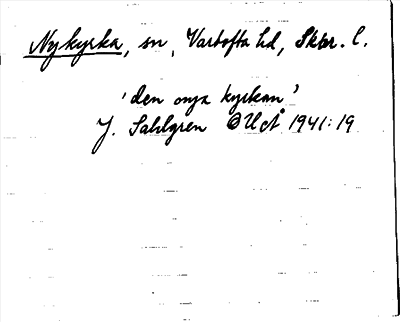 Nykyrka, sn, Vartofta hd, Skbr. l.
'den nya kyrkan'
J. Sahlgren OUÅ 1941:19